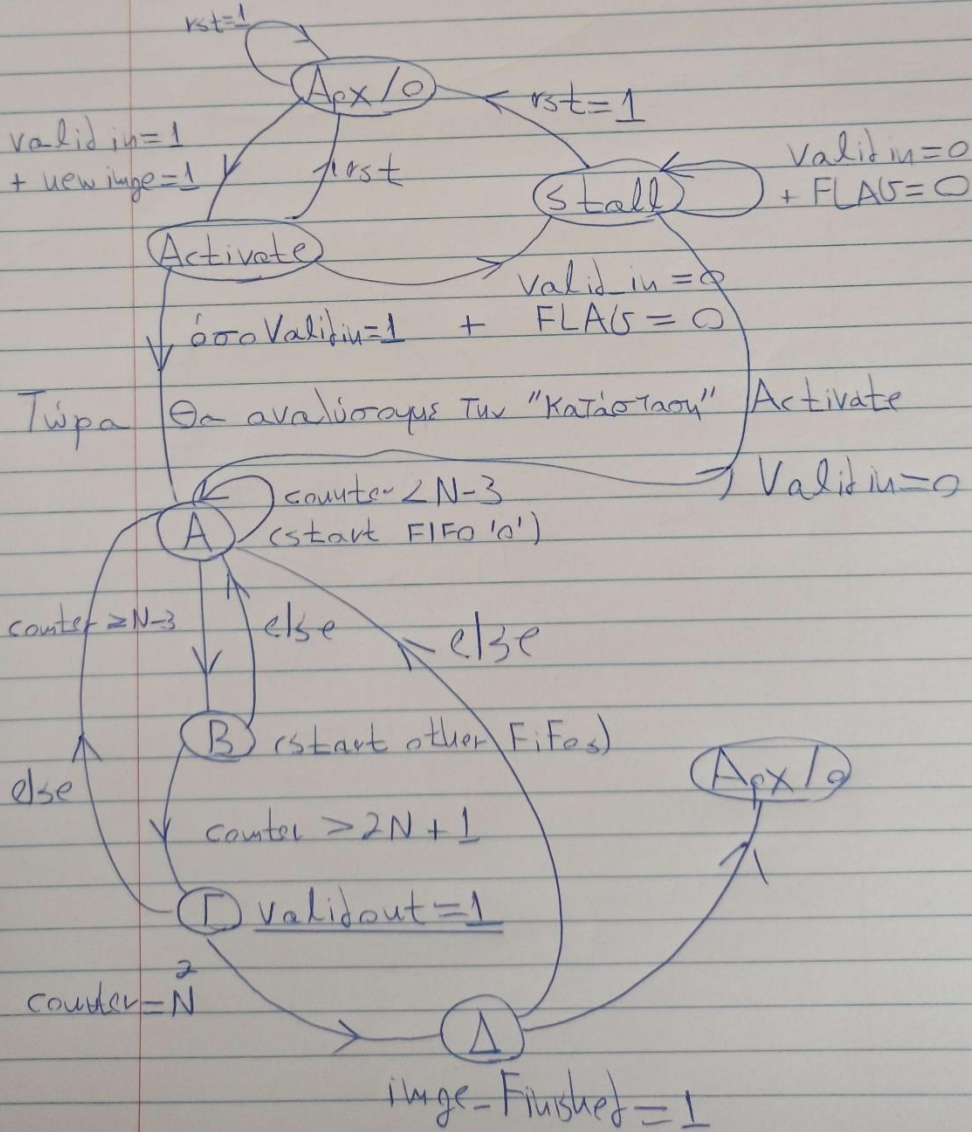 rst=1
Αρχ/0
rst=1
valid in=1
+ new image=1
rst
Stall
Valid in=0
+ FLAG=0
Activate
Valid_in=0
όσο Valid in=1 + FLAG=0
Τώρα θα αναλύσουμε την "Κατάσταση" Activate
Valid in=0
counter<N-3
A (start FIFO '0')
counter≥N-3
else
else
B (start other FiFos)
Αρχ/0
else
counter>2N+1
Γ validout=1
counter=N²
Δ
image_Finished=1